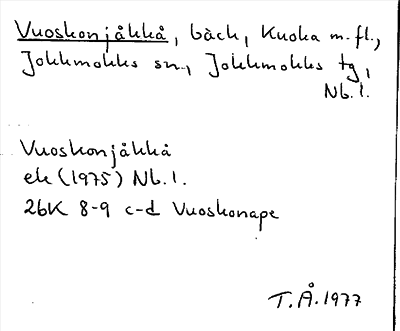 Vuoskonjåkkå, bäck, Kuoka m.fl.,
Jokkmokks sn., Jokkmokks tg,
Nb.l.
Vuoskonjåkkå
ek (1975) Nb.l.
26K 8-9 c-d Vuoskonape
T.Å.1977